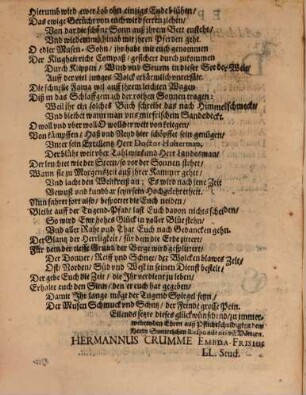 Hierumb wird awer lob ohn einiges Ende blühen/
Das ewige Gerücht von euch wird ferrn ziehen/
Von dar die schöne Sonn auß ihrem Bett entsteht/
Und wiederumb hinab mit ihren Pferden geht.
O edler Musen-Sohn/ ihr habe mit euch genommen
Der Klugheit rechte Compaß/ gesichert durch zukommen
Durch Klippen/ Wind und Sturm in dieser See der Welt/
Auff der viel junges Volck erbärmlich untersält.
Die schnelle Fama wil auff ihrem leichten Wagen
Diß in das Schlaffgemach der rothen Göttinn tragen:
Weil ihr ein solches Buch schreibt das nach Himmel schmeckt/
Und bleibet wann man uns mit frischem Sande deckt.
O woll von kriegen/
Von kämpffen/ Haß und Neyd hier schöpffet sein genügen/
Unter dem Herr Doctor Huneman,
Der blüht weit über Zahl mit dem Herr Lundesman/
Der leuchtet wie der Stern so vor der Sonnen stehet
Wann sie zu Morgenszeit auß ihrer Kammer gehet/
Und lacht den Weltkreiß an; Es wird nach seine Zeit
Bewust und kundbar seyn sein Hochgelehrtheit.
Nun fahret fort also/ bespottet die Euch neiden/
Bleibt auff der Tugend-Pfad/ last Euch davon nicht scheiden/
So wird Ewr hohes Glück in voller Blüe stehn/
Und aller Raht und That Euch nach Gedancken gehn.
Der Glantz der Herrligkeit/ für dem die Erde zittert/
Für dem der tieffe Grund der Berge wird gesplittert/
Der Donner/ Reiff und Schnee/ der Wolcken blawes Zelt/
Ost/ Norden/ Süd und West zu seinem Dienst bestelt/
Der gebe Euch die Zeit/ die Ihr verdient zu leben/
Erhalte euch den Sinn/ den er euch hat gegeben/
Damit Ihr lange möge der Tugend Spiegel seyn/
Der Musen Schmuck und Schein/ der Feinde grosse Pein.
Eilends setzte dieses glückwünschend/ zu immer-
wehrenden Ehren auß Pflichtschuldigkeit dem
Herrn
HERMANNUS CRUMME EMBDA-FRISIUS
LL. Stud.